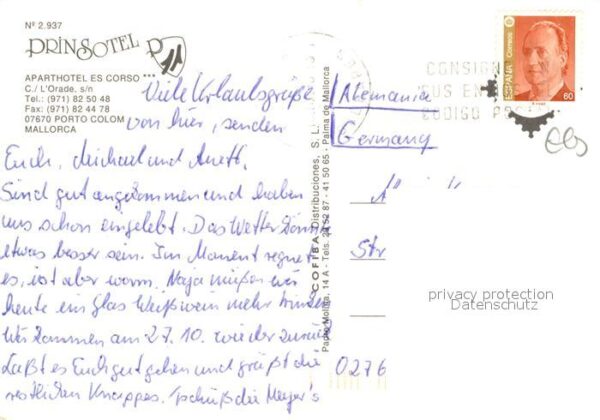 Nº 2.937
PRINSOTEL P
APARTHOTEL ES CORSO ***
C./ L'Orade, s/n
Tel.: (971) 82 50 48
Fax: (971) 82 44 78
07670 PORTO COLOM
MALLORCA
Viele Urlaubsgrüße
von hier, senden
Euch, Michael und Anett.
Sind gut angekommen und haben
uns schon eingelebt. Das Wetter könnte
etwas besser sein. Im Moment regnet
es, ist aber warm. Naja müßen wir
heute ein Glas Weißwein mehr trinken
Wir kommen am 27.10. wieder zurück
Laßt es Euch gut gehen und grüßt die
restlichen Knappes. Tschüß die Meyer's
COFIBA Distribuciones, S. L.
Padre Molina, 14 A - Tels. 24 52 87 - 41 50 65 - Palma de Mallorca
CONSIGN
SUS EN
CODIGO POS
ESPAÑA
Correos
80
Alemania
Germany
Str
privacy protection
Datenschutz
0276